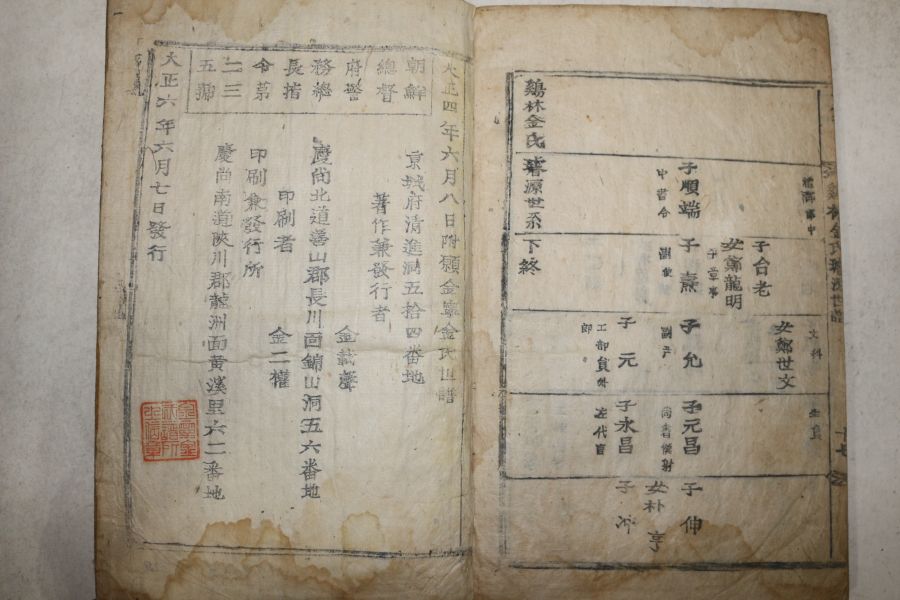 鷄林金氏璿源世譜
十七
文科
生員
女鄭世文
子台老
女鄭龍明
平章事
子順端
中書令
子熹
子允
副尹
子元昌
尙書僕射
子伸
女朴亨
子元
工部員外
郎
子永昌
左代言
子
鷄林金氏璿源世系下終
大正四年六月八日附願金寧金氏世譜
朝鮮
總督
府警
務總
長指
令第
二三
五號
京城府淸進洞五拾四番地
著作兼發行者 金載聲
慶尙北道善山郡長川面錦山洞五六番地
印刷者 金二權
印刷兼發行所
慶尙南道陜川郡龍洲面黃溪里六二番地
大正六年六月七日發行